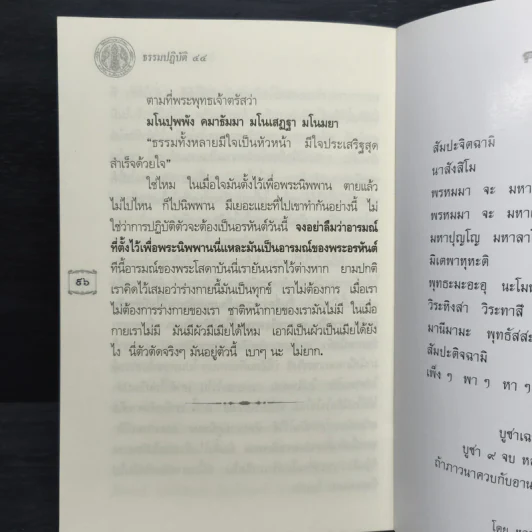 ธรรมปฏิบัติ ๔๔
ตามที่พระพุทธเจ้าตรัสว่า
มโนปุพพัง คมาธัมมา มโนเสฏฐา มโนมยา
“ธรรมทั้งหลายมีใจเป็นหัวหน้า มีใจประเสริฐสุด
สำเร็จด้วยใจ”
ใช่ไหม ในเมื่อใจมันตั้งไว้เพื่อพระนิพพาน ตายแล้ว
ไม่ไปไหน ก็ไปนิพพาน มีเยอะแยะที่ไปเขาทำกันอย่างนี้ ไม่
ใช่ว่าการปฏิบัติตัวจะต้องเป็นอรหันต์วันนี้ จงอย่าลืมว่าอารมณ์
ที่ตั้งไว้เพื่อพระนิพพานนี่แหละมันเป็นอารมณ์ของพระอรหันต์
ทีนี้อารมณ์ของพระโสดาบันนี่เรายันนรกไว้ต่างหาก ยามปกติ
เราคิดไว้เสมอว่าร่างกายนี้มันเป็นทุกข์ เราไม่ต้องการ เมื่อเรา
ไม่ต้องการร่างกายของเรา ชาติหน้ากายของเรามันไม่มี ในเมื่อ
กายเราไม่มี มันมีผัวมีเมียได้ไหม เอาผีเป็นผัวเป็นเมียได้ยัง
ไง นี่ตัวตัดจริงๆ มันอยู่ตัวนี้ เบาๆ นะ ไม่ยาก.
๕๖
สัมปะจิตฉามิ
นาสังสิโม
พรหมมา จะ มหา
พรหมมา จะ มหา
มหาปุญโญ มหาลา
มิเตพาหุหะติ
พุทธะมะอะอุ นะโม
วิระทะโย วิระทาสี
มานีมามะ พุทธัสสะ
สัมปะติจฉามิ
เพ็ง ๆ พา ๆ หา ๆ
บูชา ๙ จบ
ถ้าภาวนาควบกับ
โดย